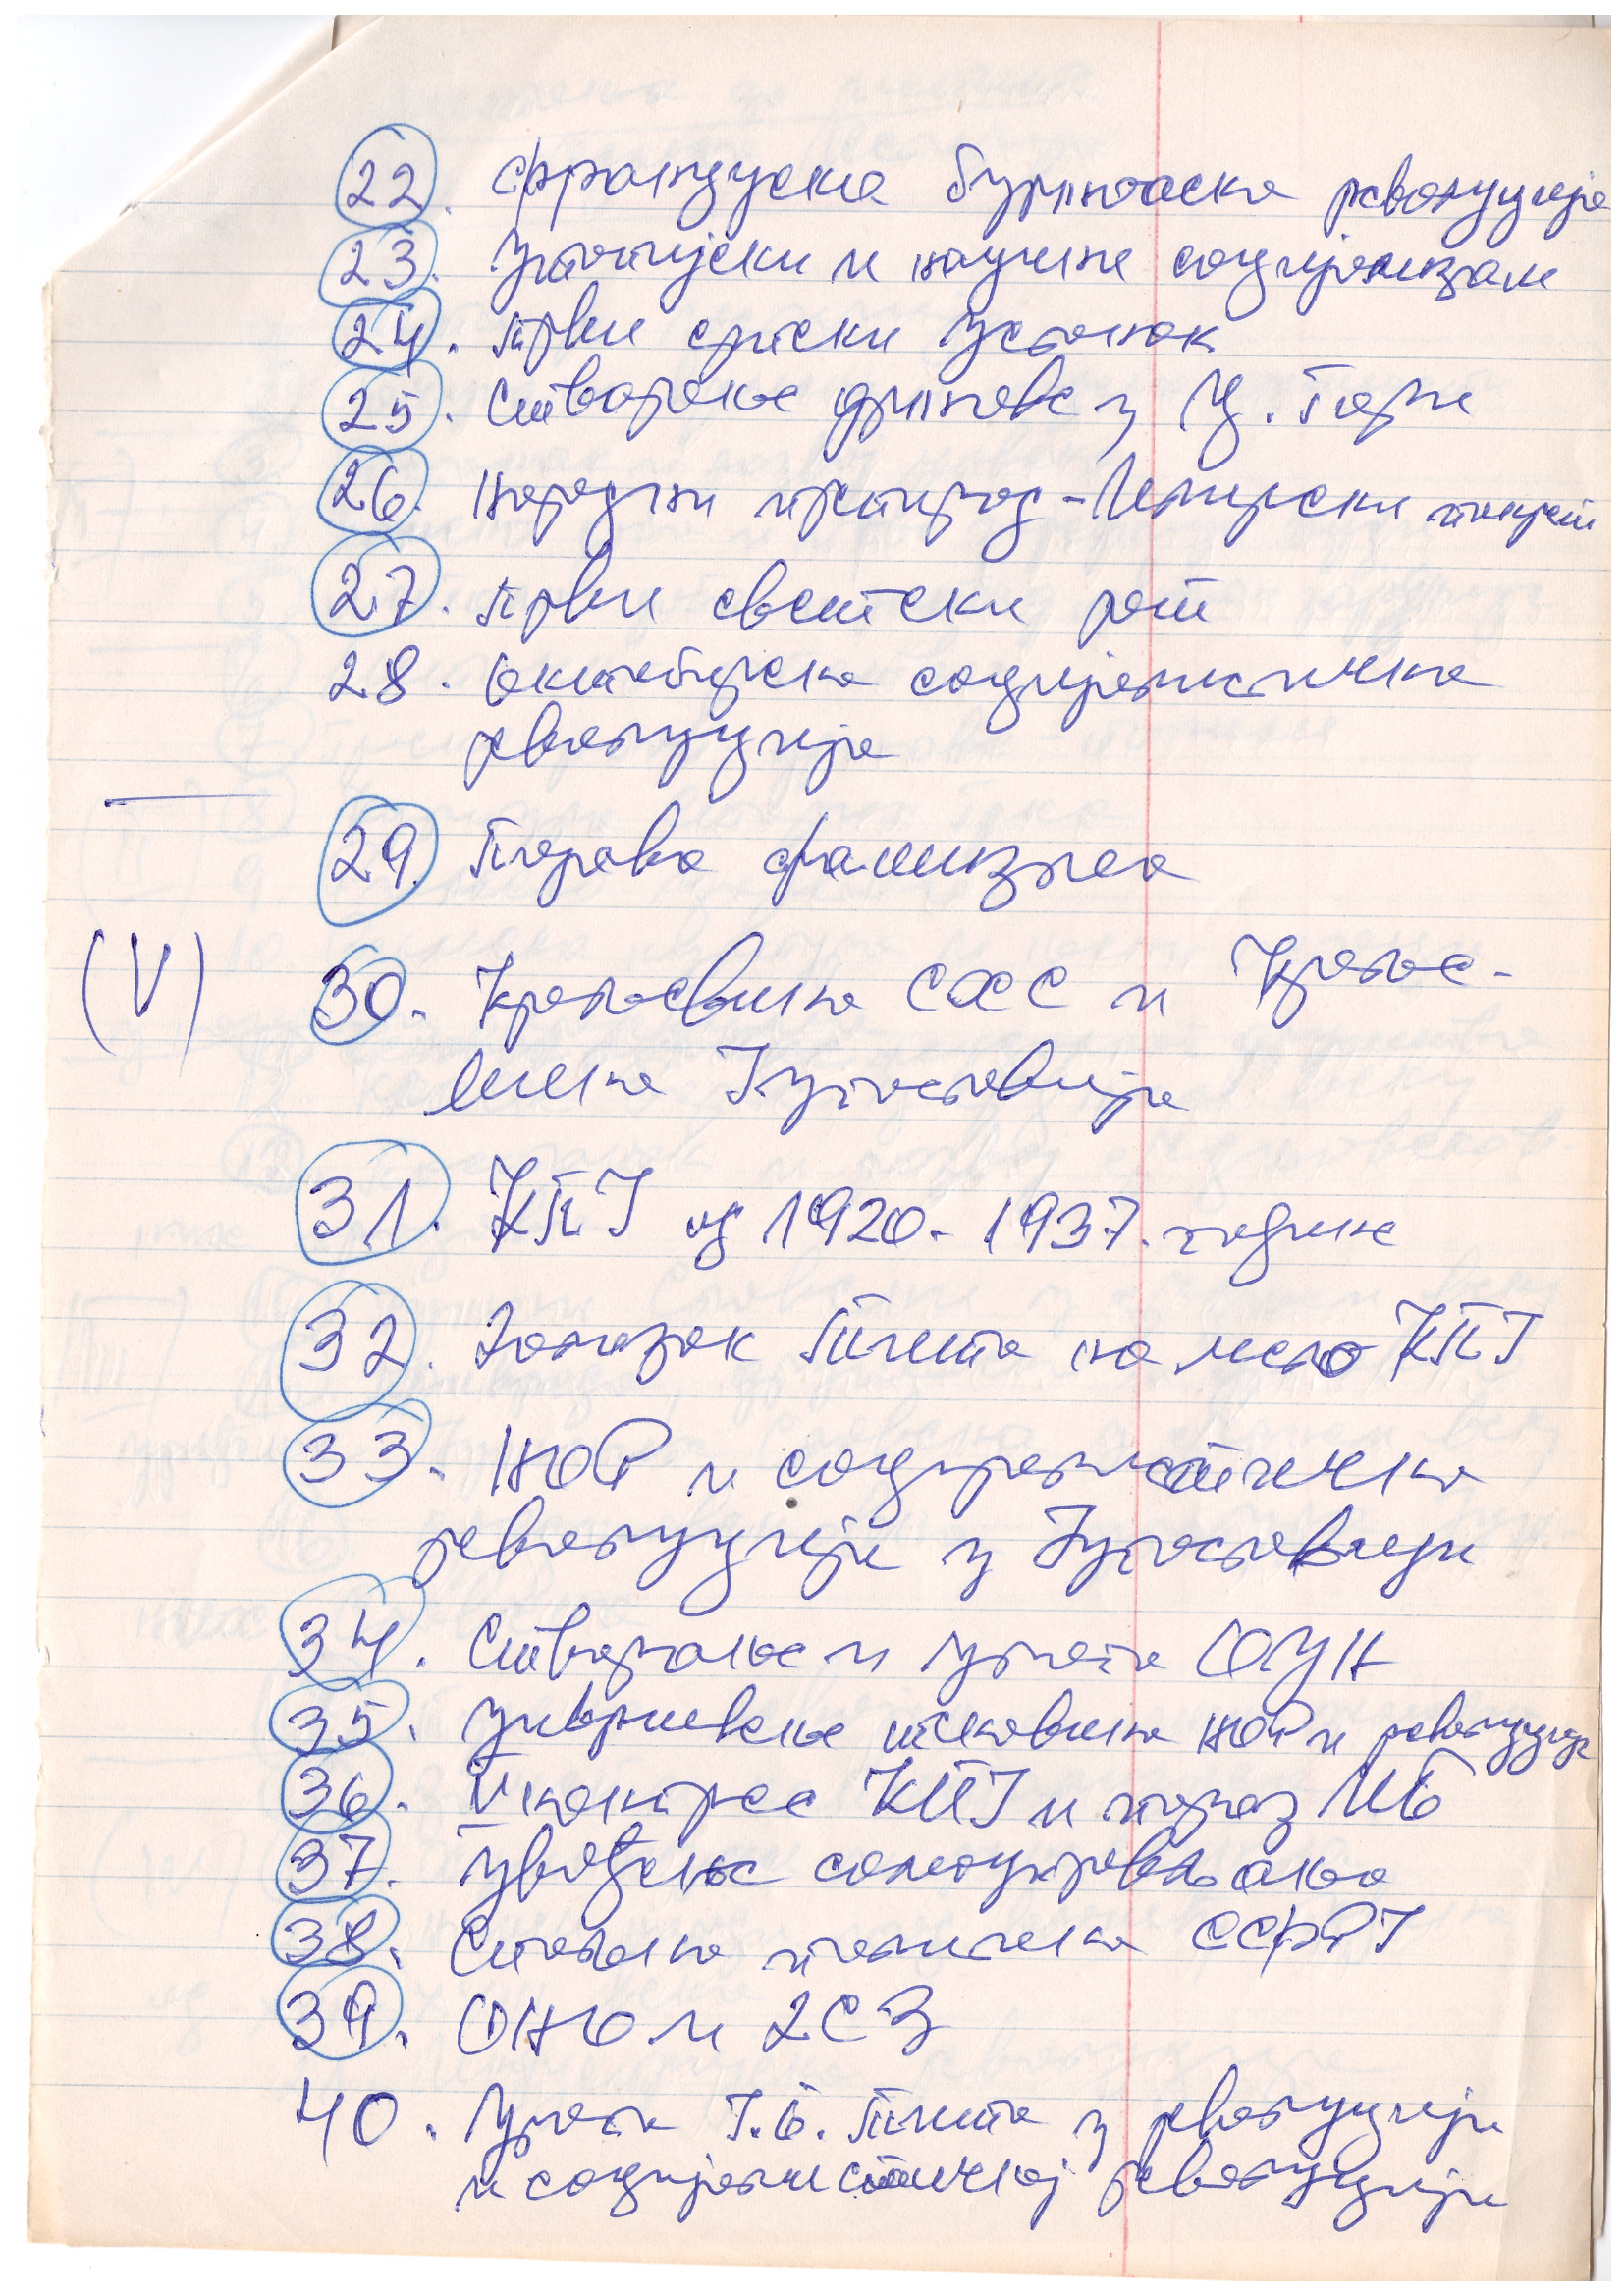 22. Француска буржоаска револуција
23. Утопијски и научни социјализам
24. Први српски устанак
25. Стварање државе у Ц. Гори
26. Народни препород - Илирски покрет
27. Први светски рат
28. Октобарска социјалистичка
револуција
29. Појава фашизма
(V) 30. Краљевина СХС и Краље-
вина Југославија
31. КПЈ од 1920. - 1937. године
32. Долазак Тита на чело КПЈ
33. НОР и социјалистичка
револуција у Југославији
34. Стварање и улога ОУН
35. Учвршћење тековина НОР и револуције
36. V конгрес КПЈ и пораз ИБ
37. Увођење самоуправљања
38. Спољна политика СФРЈ
39. ОНО и ДСЗ
40. Улога Ј.Б. Тита у револуцији
и социјалистичкој револуцији